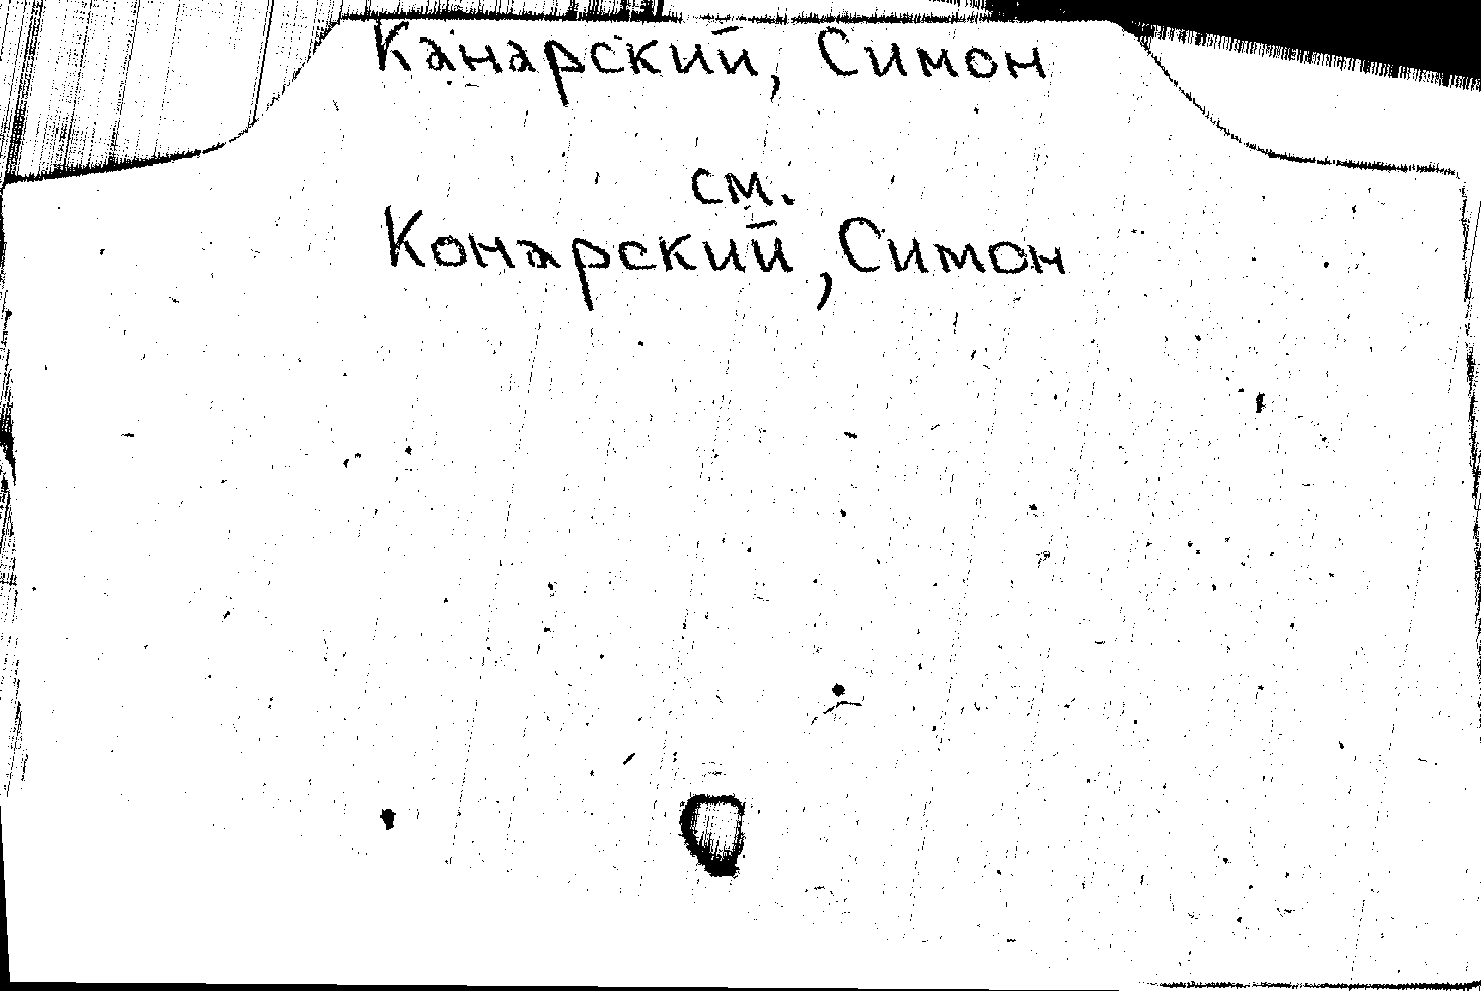 Канарский, Симон
см.
Конарский, Симон